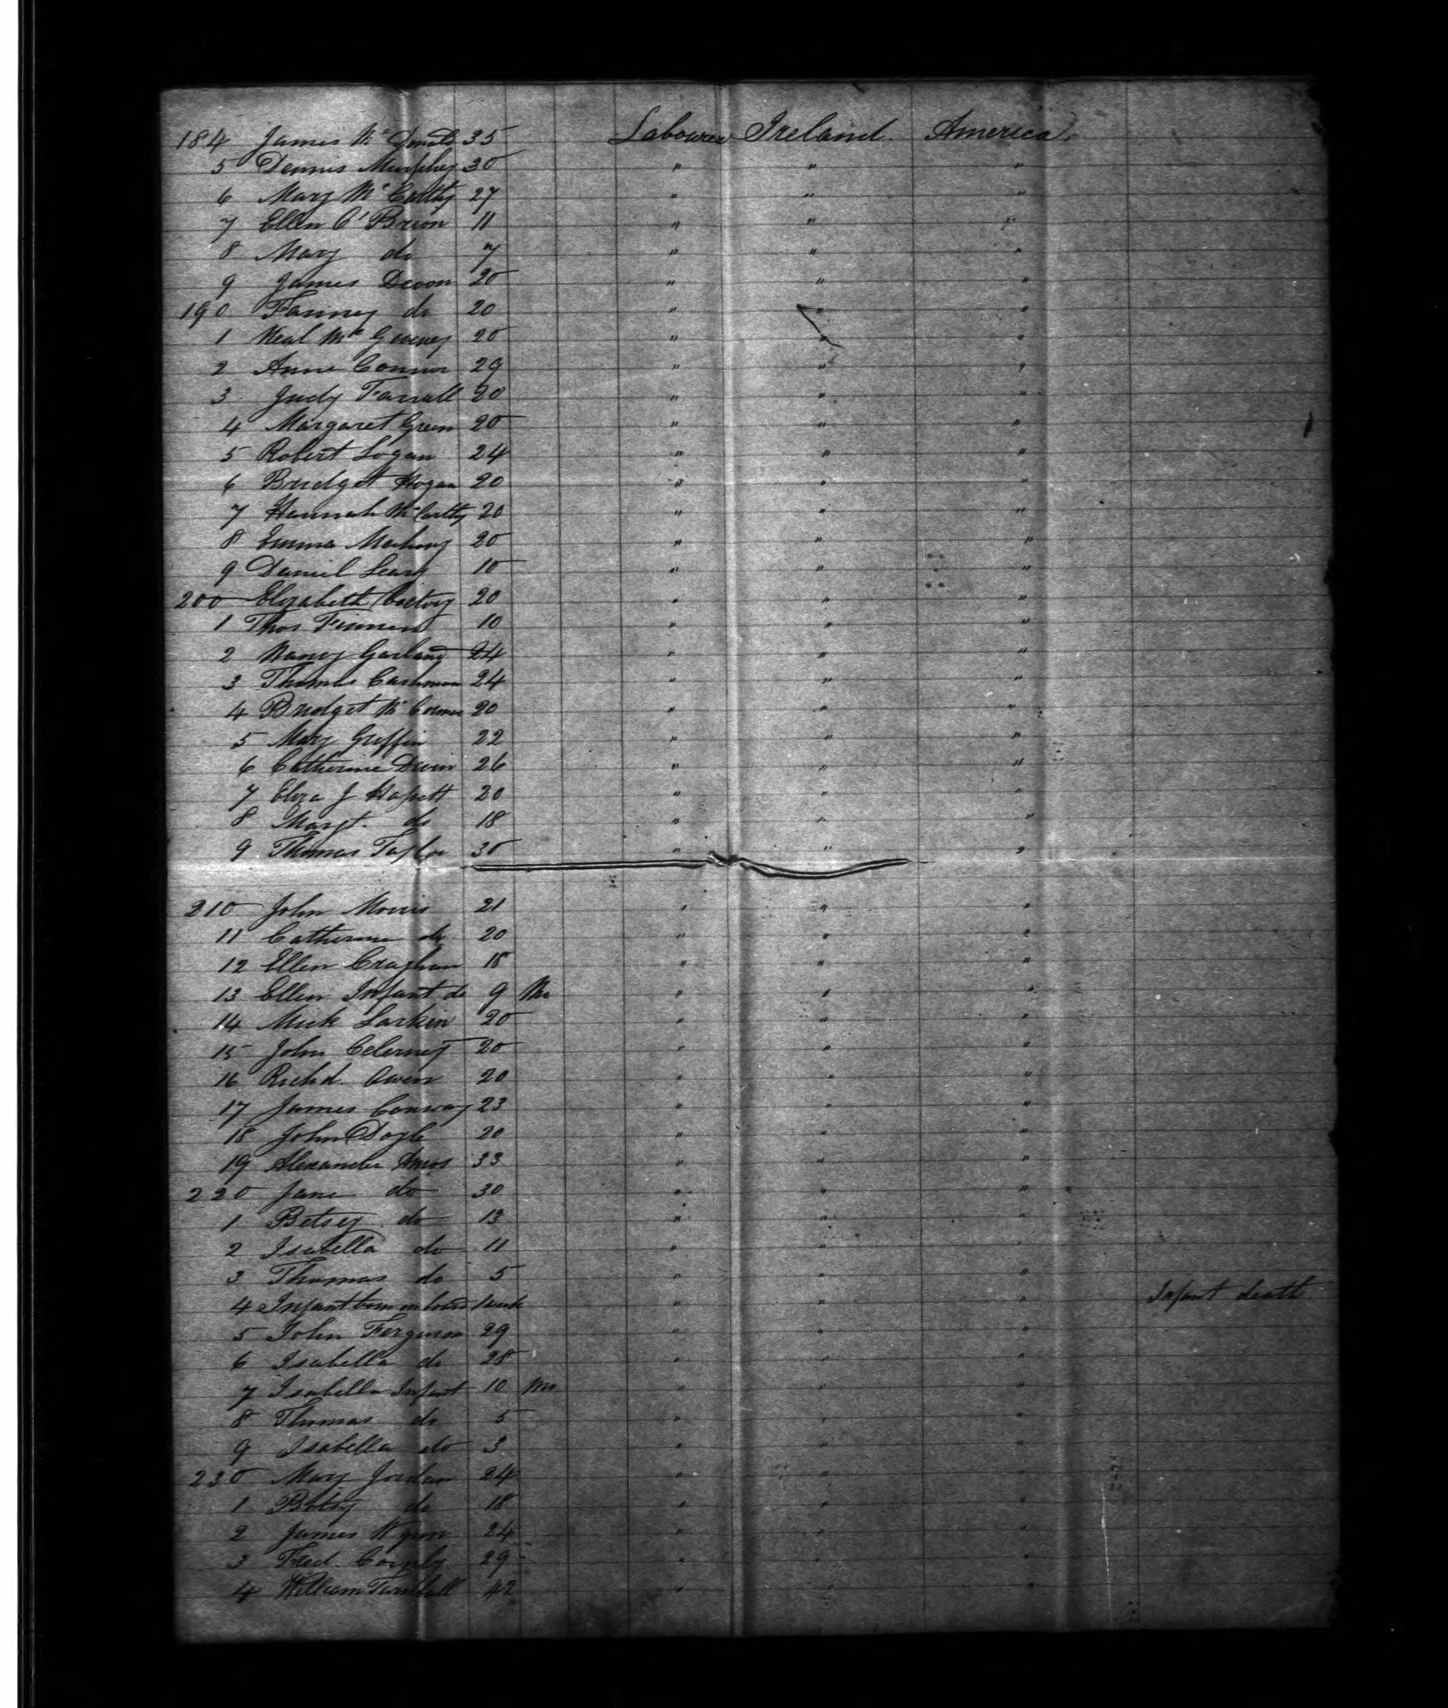 184 James Mc Donald 35 Labourer Ireland America
5 Dennis Murphy 30 " " "
6 Mary Mc Carthy 27 " " "
7 Ellen O'Brien 11 " " "
8 Mary do 7 " " "
9 James Devon 20 " " "
190 Fanney do 20 " " "
1 Neal Mc 20 " " "
2 Anne Connor 29 " " "
3 Judy Farrall 20 " " "
4 Margaret Green 20 " " "
5 Robert Logan 24 " " "
6 Bridget Hogan 20 " " "
7 Hannah Mc Carthy 20 " " "
8 Emma 20 " " "
9 Daniel Leary 10 " " "
200 Elizabeth 20 " " "
1 Thos 10 " " "
2 Nancy Garland 24 " " "
3 Thomas 24 " " "
4 Bridget Mc 20 " " "
5 Mary Griffin 22 " " "
6 Catherine 26 " " "
7 Eliza J 20 " " "
8 Margt. do 18 " " "
9 Thomas Taylor 30 " " "
210 John Morris 21 " " "
11 Catherine do 20 " " "
12 Ellen 18 " " "
13 Ellen Infant do 9 Mo " " "
14 Mick Larkin 20 " " "
15 John 20 " " "
16 Richd. Owen 20 " " "
17 James Conway 23 " " "
18 John Doyle 20 " " "
19 Alexander Amos 33 " " "
220 Jane do 30 " " "
1 Betsey do 13 " " "
2 Isabella do 11 " " "
3 Thomas do 5 " " "
4 Infant born on board 1 week " " " Infant death
5 John Ferguson 29 " " "
6 Isabella do 28 " " "
7 Isabella Infant 10 Mo " " "
8 Thomas do 5 " " "
9 Isabella do 3 " " "
230 Mary Jordan 24 " " "
1 Betsy do 18 " " "
2 James 24 " " "
3 Fred. 29 " " "
4 William Turnbull 42 " " "